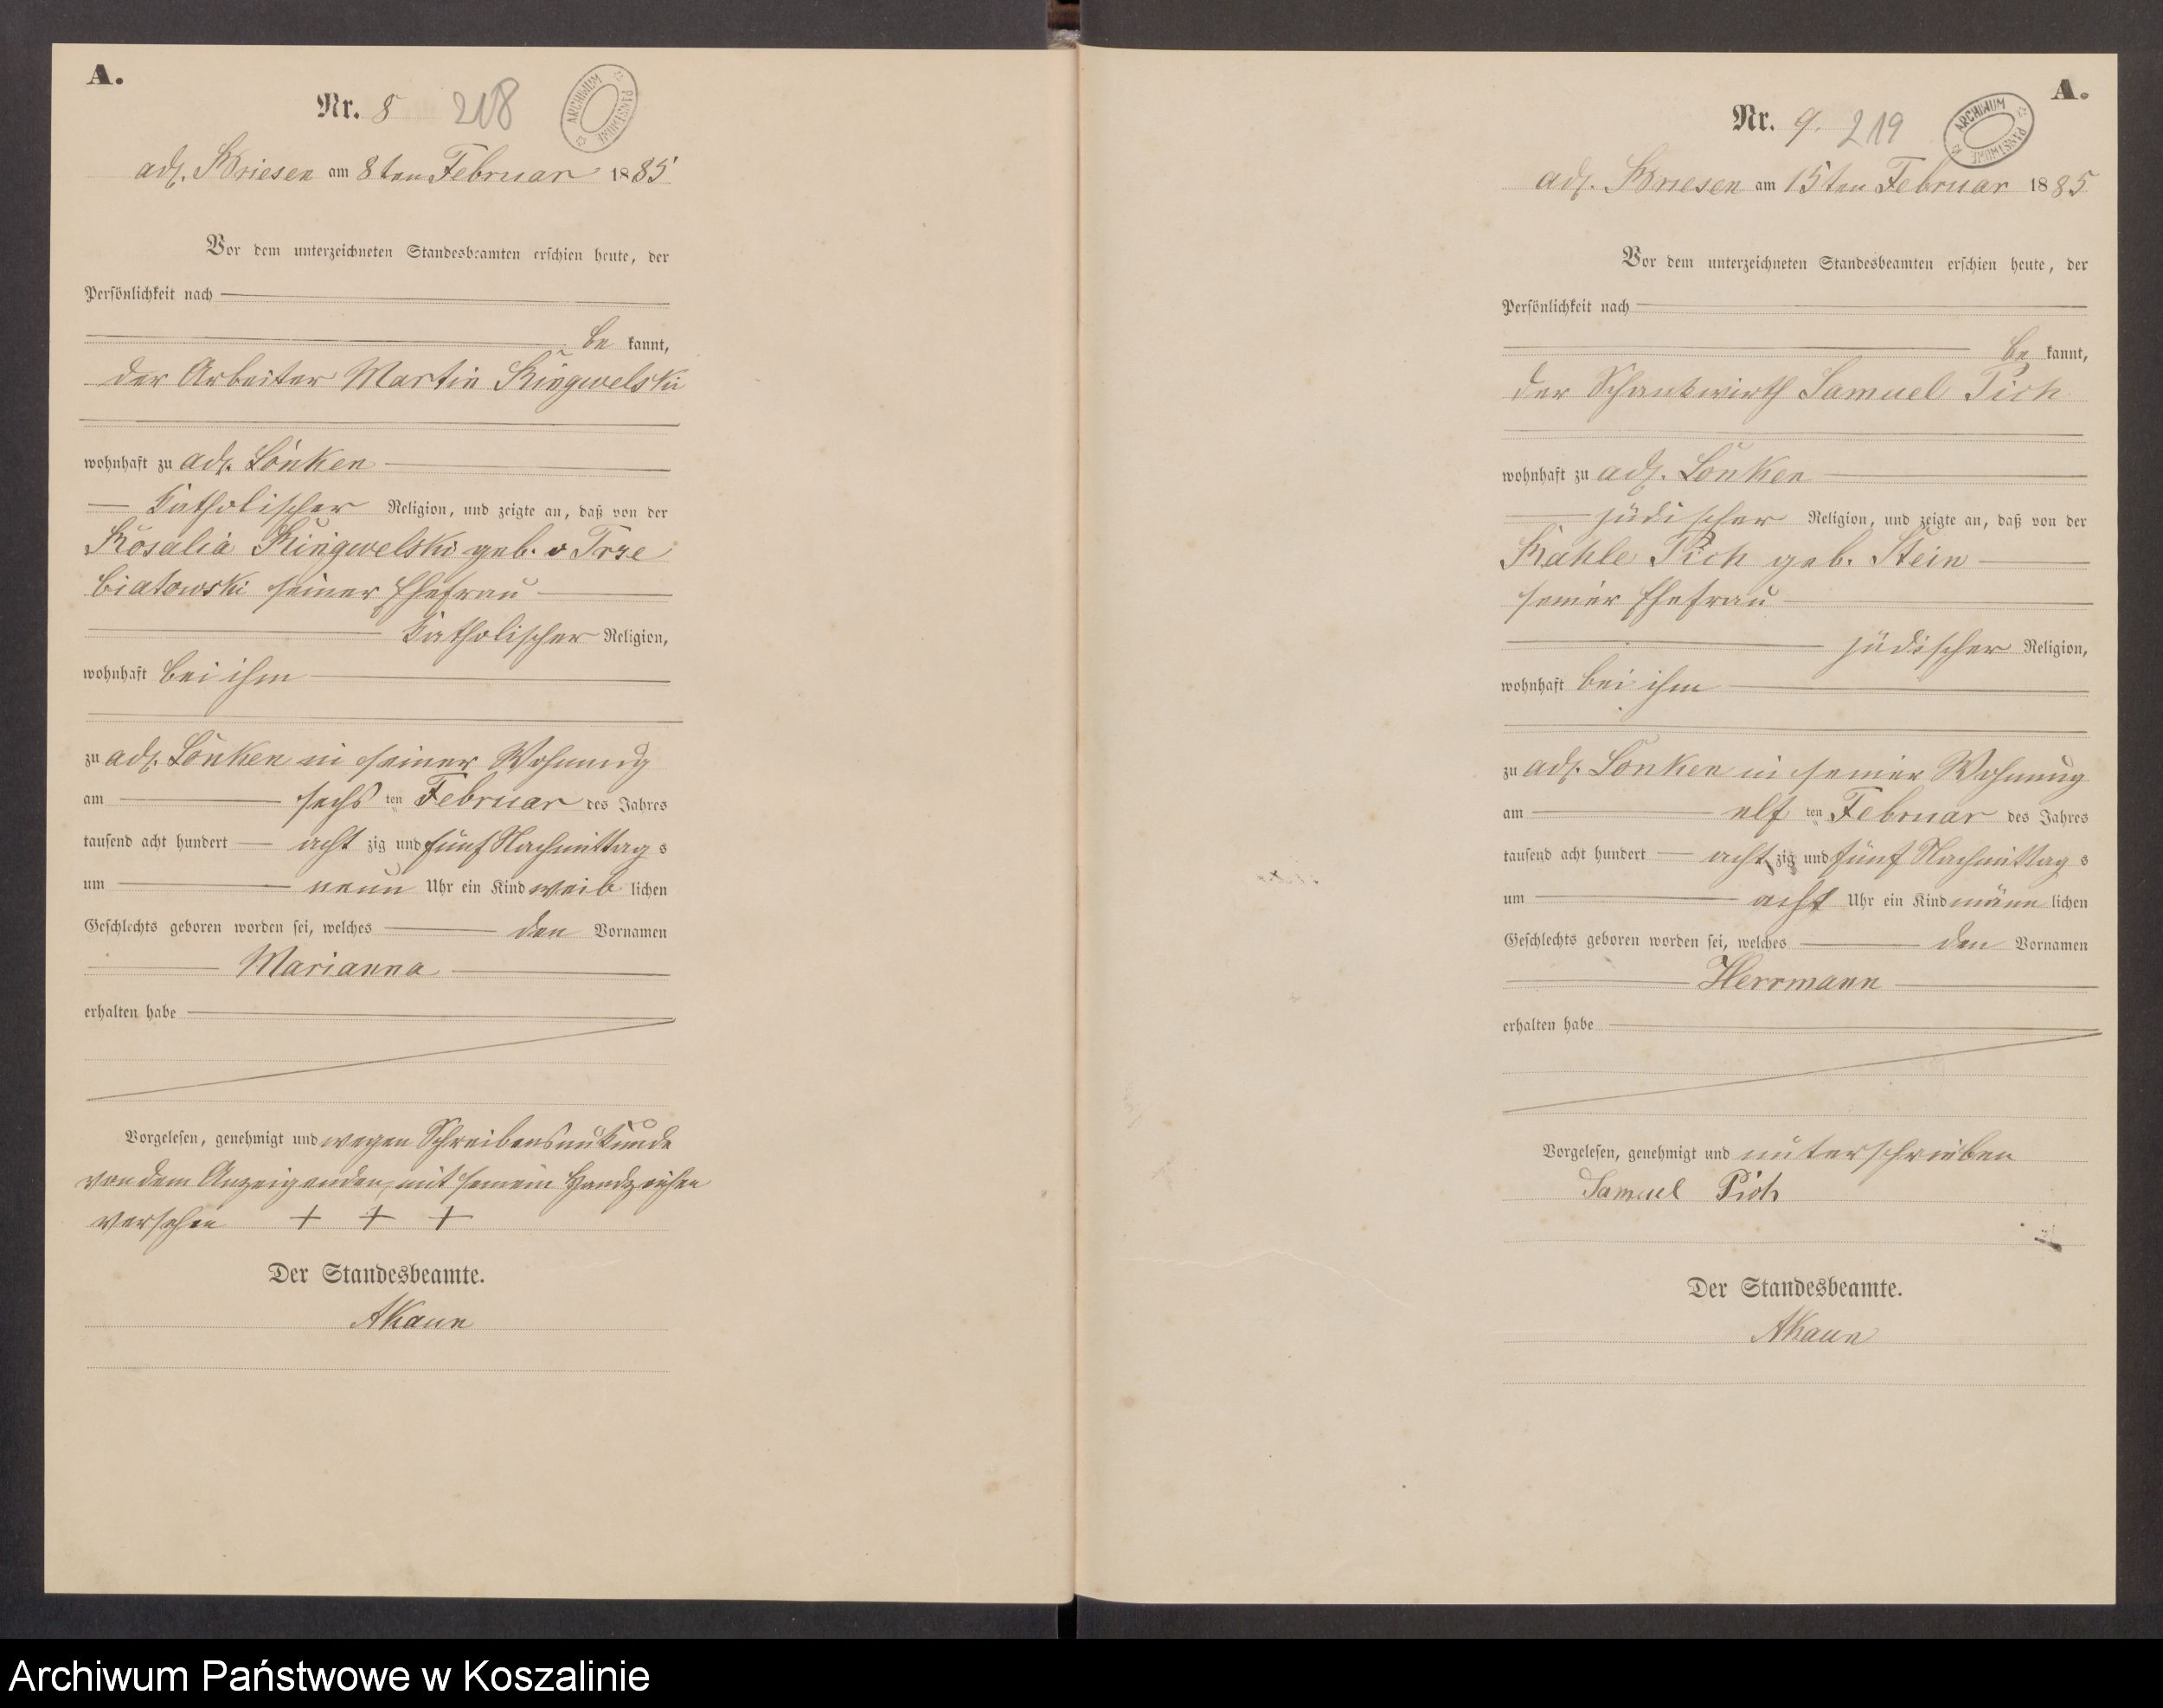 A.
Nr. 8 218
ARCHIWUM PAŃSTWOWE
adl. Briesen am 8ten Februar 1885
Vor dem unterzeichneten Standesbeamten erschien heute, der
Persönlichkeit nach
be kannt,
der Arbeiter Martin
wohnhaft zu adl. Lonken
Katholischer Religion, und zeigte an, daß von der
Rosalia geb. v Trze
biatowski seiner Ehefrau
Katholischer Religion,
wohnhaft bei ihm
zu adl. Lonken in seiner Wohnung
am sechs ten Februar des Jahres
tausend acht hundert acht zig und fünf Nachmittag s
um neun Uhr ein Kind weib lichen
Geschlechts geboren worden sei, welches den Vornamen
Marianna
erhalten habe
Vorgelesen, genehmigt und wegen Schreibensunkunde
von dem Anzeigenden, mit seinem Handzeichen
versehen + + +
Der Standesbeamte.
AKaun
A.
Nr. 9. 219
ARCHIWUM PAŃSTWOWE
adl. Briesen am 15ten Februar 1885
Vor dem unterzeichneten Standesbeamten erschien heute, der
Persönlichkeit nach
be kannt,
der Schankwirth Samuel Pich
wohnhaft zu adl. Lonken
jüdischer Religion, und zeigte an, daß von der
Rahle Pich geb. Stein
seiner Ehefrau
jüdischer Religion,
wohnhaft bei ihm
zu adl. Lonken in seiner Wohnung
am elf ten Februar des Jahres
tausend acht hundert acht zig und fünf Nachmittag s
um acht Uhr ein Kind männ lichen
Geschlechts geboren worden sei, welches den Vornamen
Herrmann
erhalten habe
Vorgelesen, genehmigt und unterschrieben
Samuel Pich
Der Standesbeamte.
AKaun
Archiwum Państwowe w Koszalinie